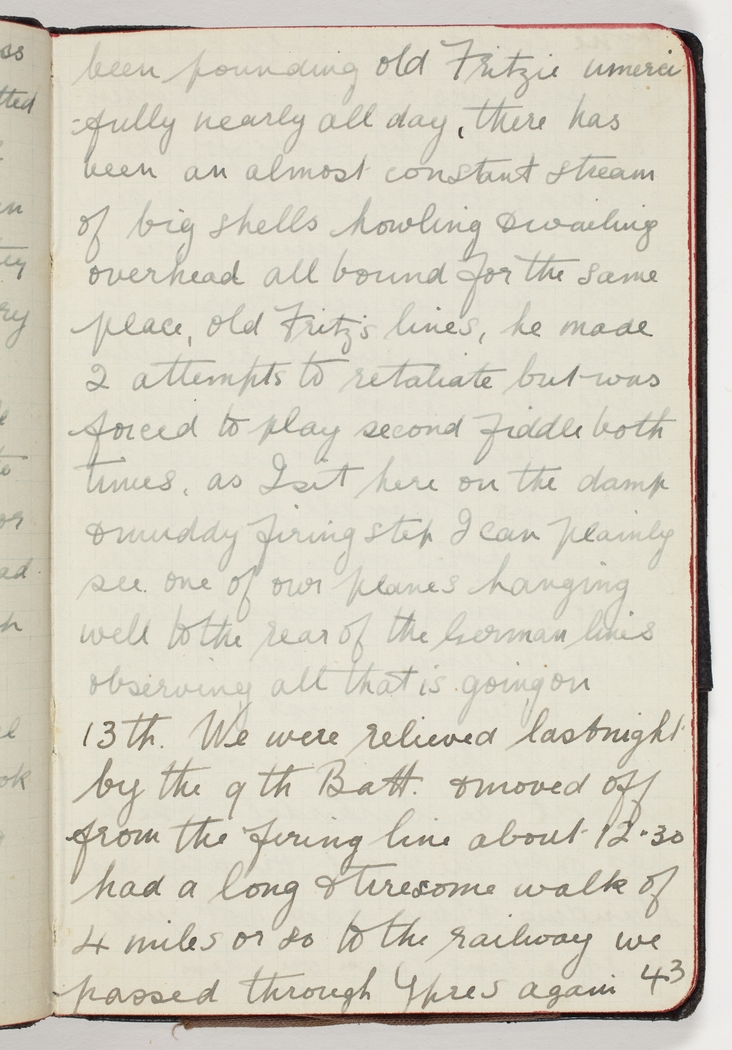 been pounding old Fritzie umerci
-fully nearly all day, there has
been an almost constant stream
of big shells howling & wailing
overhead all bound for the same
place, old Fritz's lines, he made
2 attempts to retaliate but was
forced to play second fiddle both
times, as I sit here on the damp
& muddy firing step I can plainly
see one of our planes hanging
well to the rear of the German lines
observing all that is going on
13th. We were relieved last night
by the 9th Batt. & moved off
from the firing line about 12.30
had a long & tiresome walk of
4 miles or so to the railway we
passed through Ypres again 43
ss
tted
in
ry
or
ad
ok